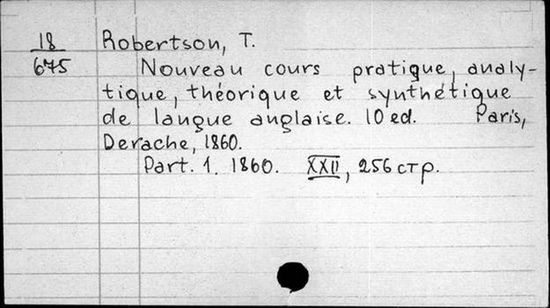 18 Robertson, T.
675 Nouveau cours pratique, analy-
tique, théorique et synthétique
de langue anglaise. 10 ed. Paris,
Derache, 1860.
Part. 1. 1860. XXII, 256 стр.